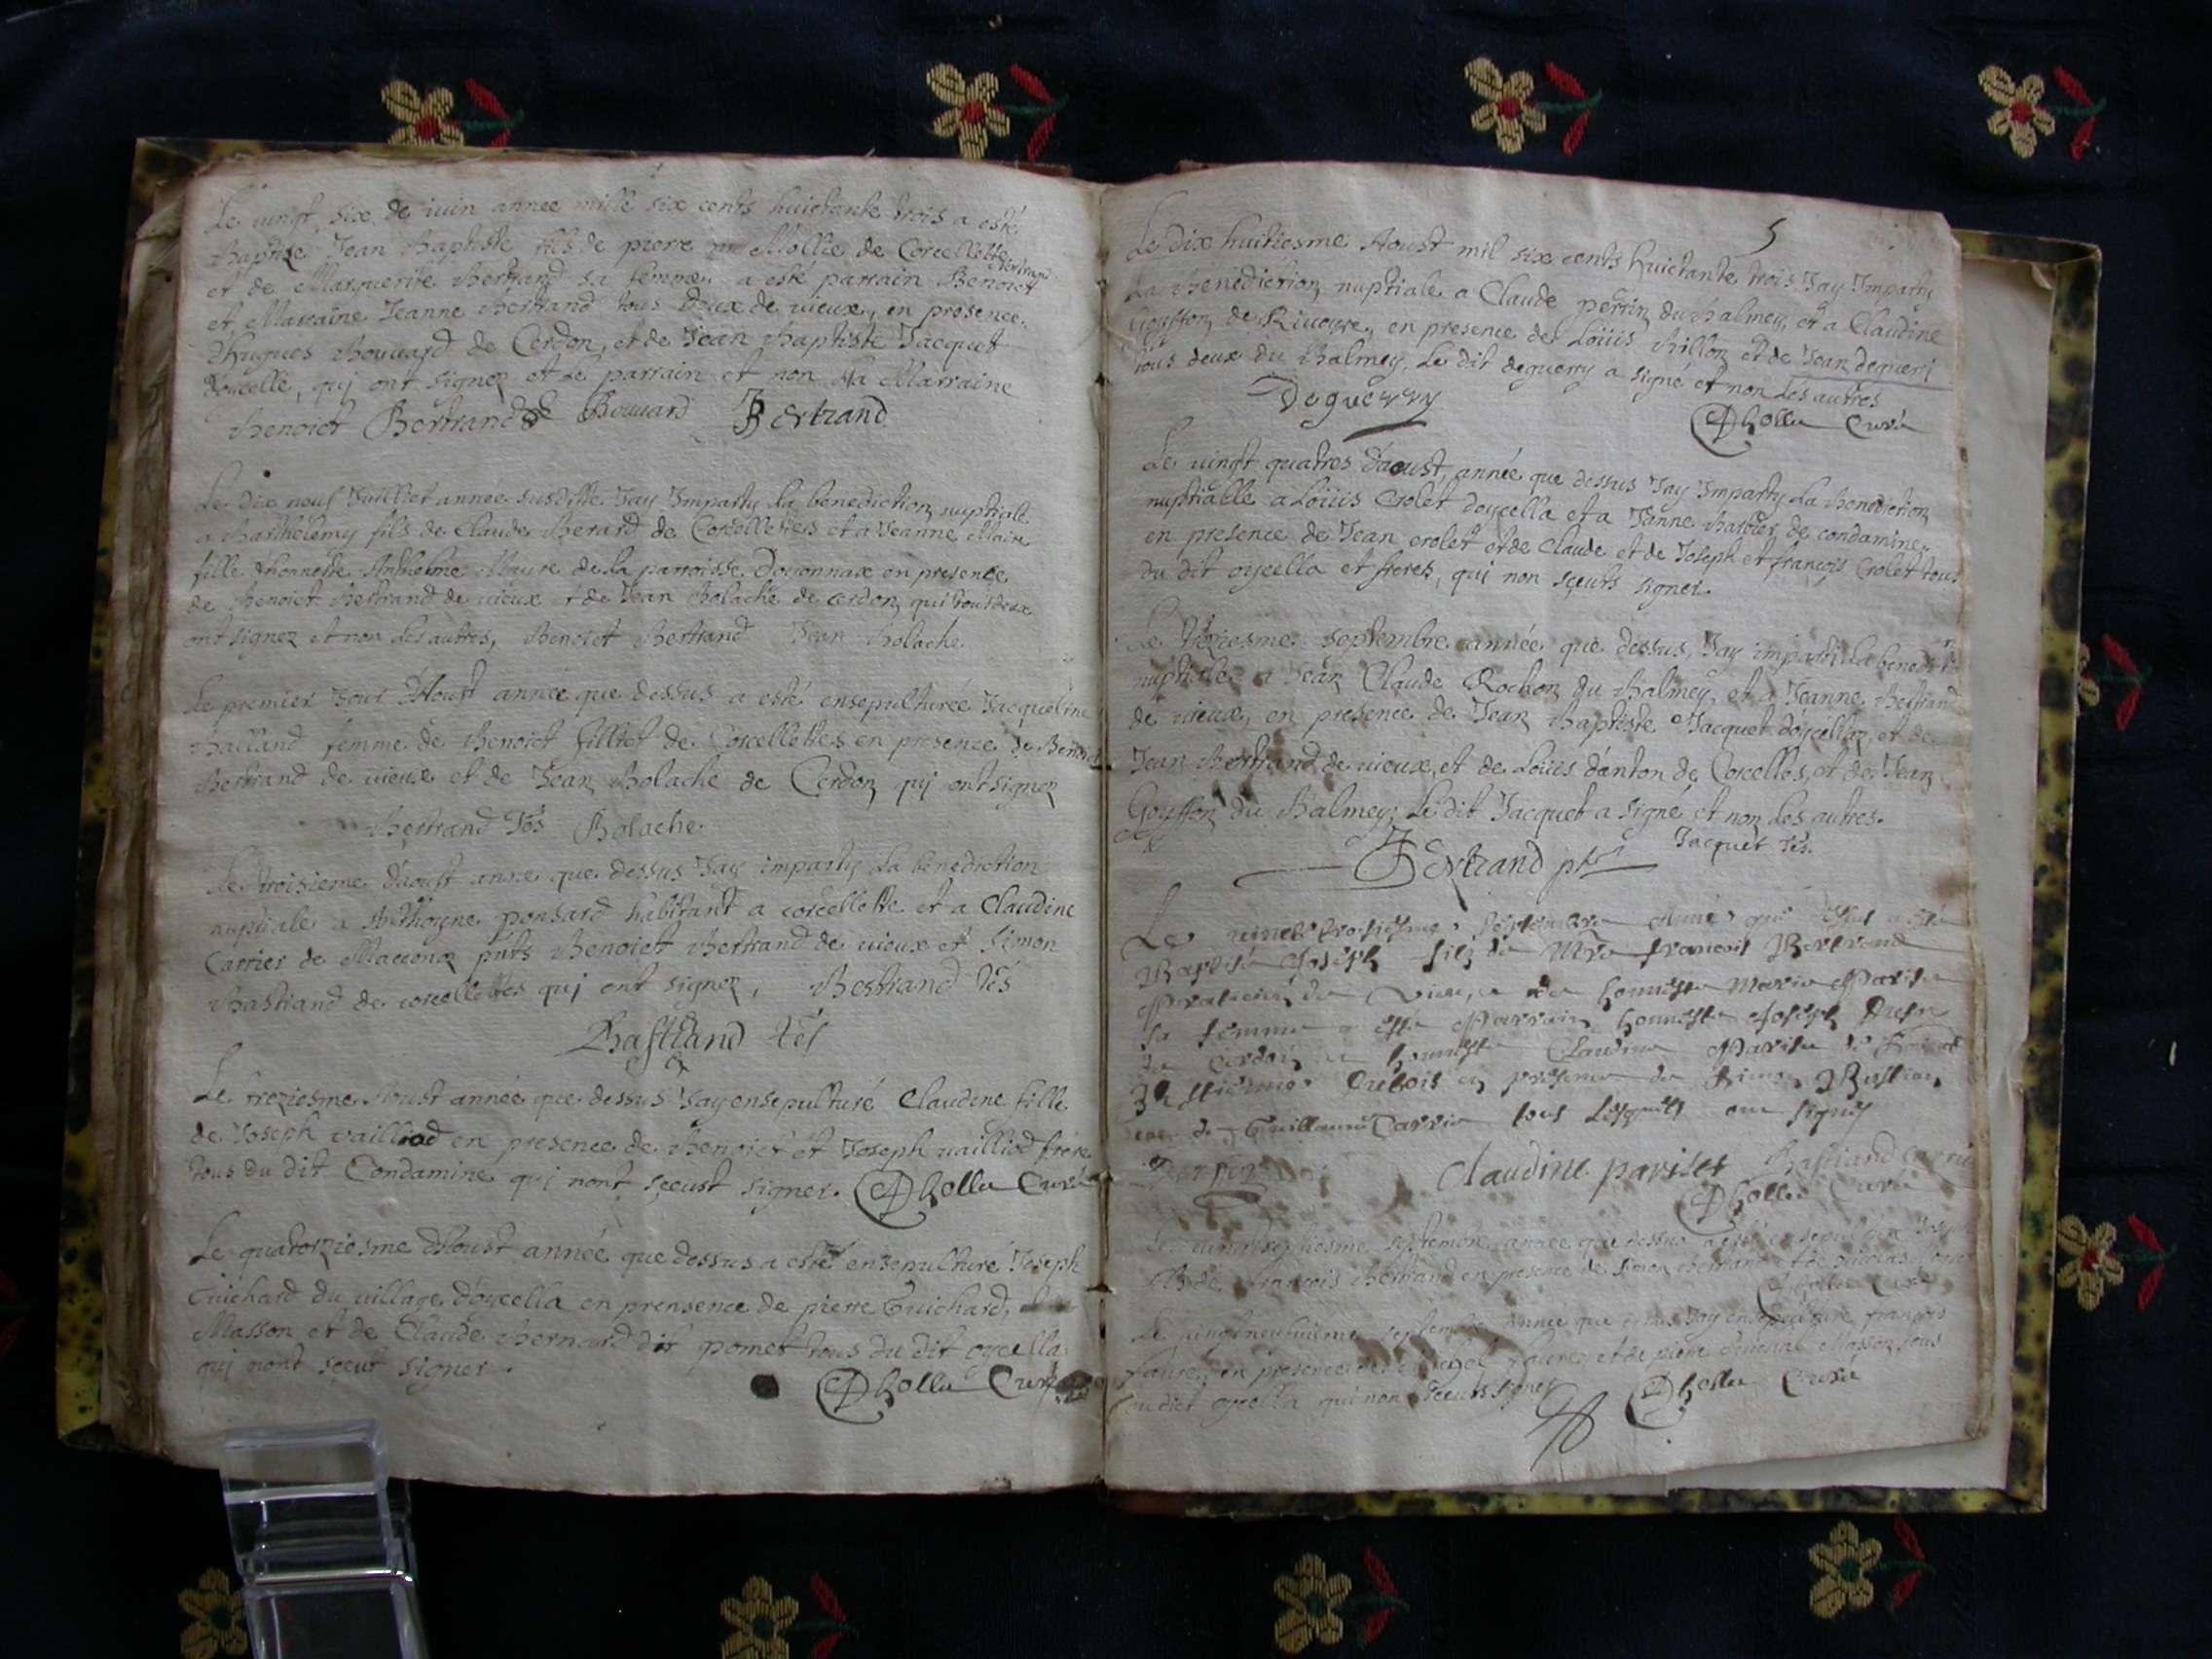 Le vingt six de iuin annee mille six cents huictante trois a esté
Baptize Jean Baptiste fils de pierre Mollie de Corcellette
et de Marguerite Bertrand sa femme a esté parrain Benoict Bertrand
et Marraine Jeanne Bertrand tous deux de uieux, en presence
d'hugues Bouuard de Cerdon, et de Jean Baptiste Jacquet
doycelle, quj ont signez et le parrain et non la Marraine
Benoict Bertrand Bouuard Bertrand
Le dix neuf Juilliet annee susditte Jay Imparty la benediction nuptiale
a Barthelemy fils de Claude Berard de Corcellettes et a Jeanne Maire
fille d'honneste Anthelme Mayre de la parroisse Doyonnax en presence
de Benoict Bertrand de uieux et de Jean Bolache de cerdon qui tous deux
ont signez et non les autres, Benoict Bertrand Jean Bolache
Le premier Jour d'Aoust année que dessus a esté ensepulturée Jacqueline
Balland femme de Benoict filliet de Corcellettes en presence de Benoict
Bertrand de uieux et de Jean Bolache de Cerdon qui ont signez
Bertrand Tés Bolache
Le troisieme d'aoust annee que dessus Jay imparty la benediction
nuptiale a Anthoyne ponsard habitant a corcellette et a Claudine
Carrier de Macconoz pnts Benoict Bertrand de uieux et Simon
Bastiand de corcellettes quj ont signez, Bertrand Tés
Bastiand tés
Le treziesme Aoust année que dessus Jay ensepulturé Claudine fille
de Joseph vailliod en presence de Benoict et Joseph vailliod frere
tous du dit Condamine qui nont sceust signer. Dholle Curé
Le quatorziesme d'Aoust année que dessus a esté ensepulturé Joseph
Guichard du uillage d'oycella en prensence de pierre Guichard,
Masson et de Claude Bernard dit pomet tous du dit oycella
qui nont sceut signer. Dholle Curé
5
Le dix huitiesme Aoust mil six cents huictante trois Jay Imparty
La Benediction nuptiale a Claude perrin du Balmey, et a Claudine
Goyffon de Riuoyre, en presence de Loüis Billon et de Jean Degueri
tous deux du Balmey, Le dit deguerry a signé et non les autres
Deguerry Dholle Curé
Le uingt quatres d'aoust, année que dessus Jay Imparty La Benediction
nuptialle a Loüis Crolet doycella et a Janne Barbier de condamine
en presence de Jean crolet et de Claude et de Joseph et francois Crolet tous
du dit oycella et freres, qui non sceuts signer.
Le septembre année que dessus, Jay imparti la bened
nuptiale a Jean Claude Rochon du Balmey, et a Jeanne Bertrand
de uieux, en presence de Jean Baptiste Jacquet doycellaz, et de
Jean Bertrand de uieux, et de Loüis d'anton de Corcelles, et de Jean
Goyffon du Balmey; Le dit Jacquet a signé et non les autres.
Bertrand ptr Jacquet Tés.
Le vingt troisiesme septembre Année que dessus a esté
Baptisé Joseph filz de Mre francois Bertrand
de Vieu, et de honneste Marie Pariset
sa femme a esté Parrain honneste Joseph
de Cerdon et honneste Claudine Pariset
en presence de Simon Bastian
et de Guillaume Carrier tous lesquels ont signés
Claudine pariset Bastiand
Dholle Curé
Le uingt septiesme septembre annee que dessus a esté ensepulturé
fils de francois Bertrand en presence de Simon Bertrand et de
Dholle Curé
Le uingt neufuiesme septembre année que dessus Jay ensepulturé francois
faure, en presence de et de pierre Masson tous
du dict oycella qui non sceuts signer Dholle Curé